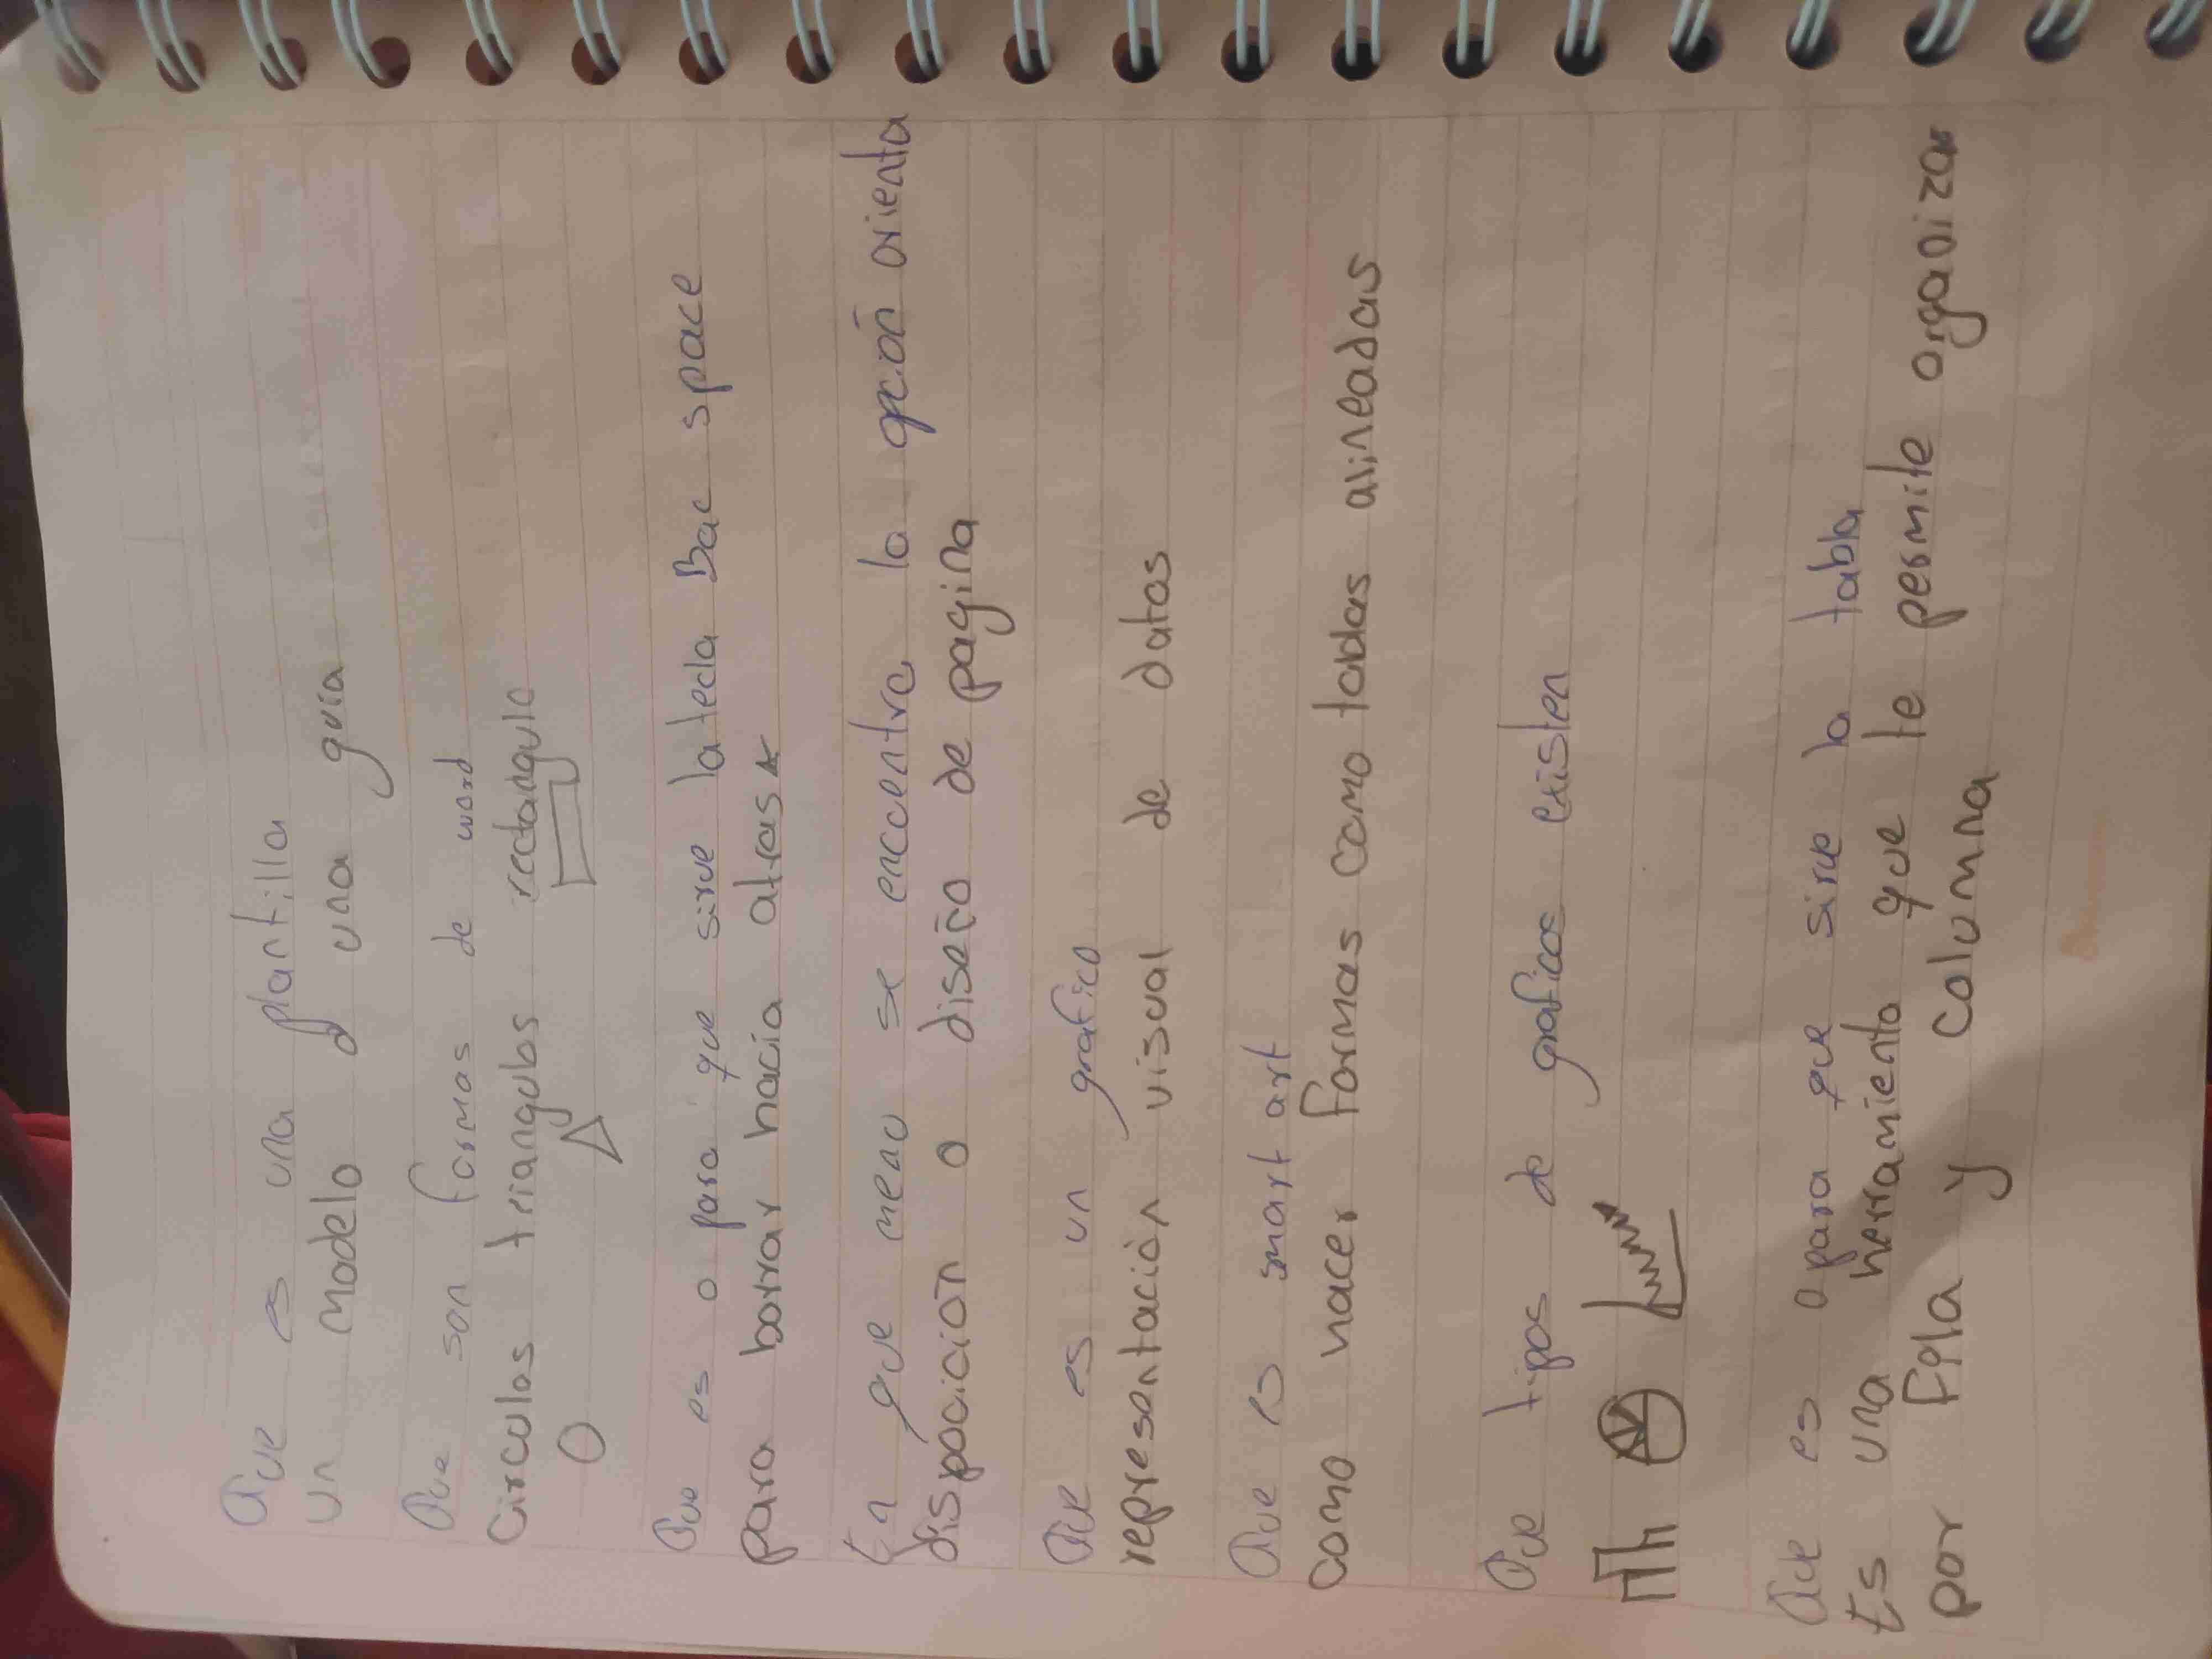 Que es una plantilla
un modelo d una guía
Que son formas de word
Circulos triangulos rectangulo
Que es o para que sirve la tecla Bac space
para borrar hacia atras
En que menu se encuentra la opción orienta
disposicion o diseño de pagina
Que es un grafico
representación visual de datos
Que es smart art
como hacer formas como todas alineadas
Que tipos de graficos existen
Que es o para que sirve la tabla
Es una herramienta que te permite organizar
por fila y columna